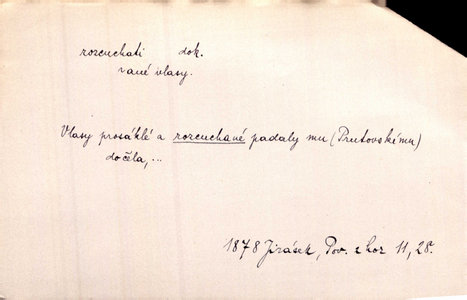 rozcuchati dok.
rané vlasy.
Vlasy prosáklé a rozcuchané padaly mu (Prutovskému)
do čela,...
1878 Jirásek, Pov. z hor 11, 28.